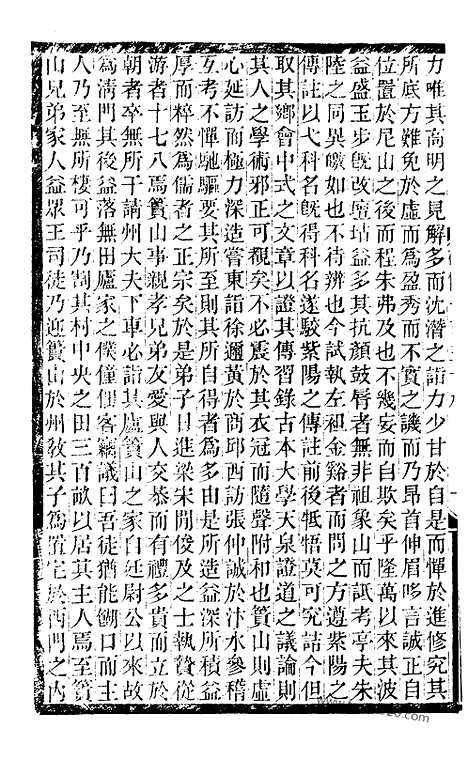 力唯其高明之見解多而沈潛之詣力少甘於自是而憚於進修究其
所底方難免於虛而爲盈秀而不實之譏而乃昂首伸眉哆言誠正自
位置於尼山之後而程朱弗及也不幾妄而自欺矣乎隆萬以來其波
益盛玉步既改壇坫益多其抗顏鼓脣者無非祖象山而詆考亭夫朱
陸之同異皦如也不待辨也今試執左袒金谿者而問之方遵紫陽之
傳註以弋科名既得科名遂駮紫陽之傳註前後牴牾莫可究詰今但
取其鄉會中式之文章以證其傳習錄古本大學天泉證道之議論則
其人之學術邪正可觀矣不必震於其衣冠而隨聲附和也簣山則虛
心延訪而極力深造嘗東詣徐邇黃於商邱西訪張仲誠於汴水參稽
互考不憚馳驅要其所至則其所自得者爲多由是所造益深所積益
厚而粹然爲儒者之正宗矣於是弟子日進梁宋閒俊及之士執贄從
游者十七八焉簣山事親孝兄弟友愛與人交恭而有禮多貴而立於
朝者卒無所干請州大夫下車必詣其廬簣山之家自廷尉公以來故
爲淸門其後益落無田廬家之僕僮佃客竊議曰吾徒猶能餬口而主
人乃至無所棲可乎乃制其村中央之田三百畝以居其主人焉至簣
山兄弟家人益眾王司徒乃迎簣山於州敎其子爲置宅於西門之內